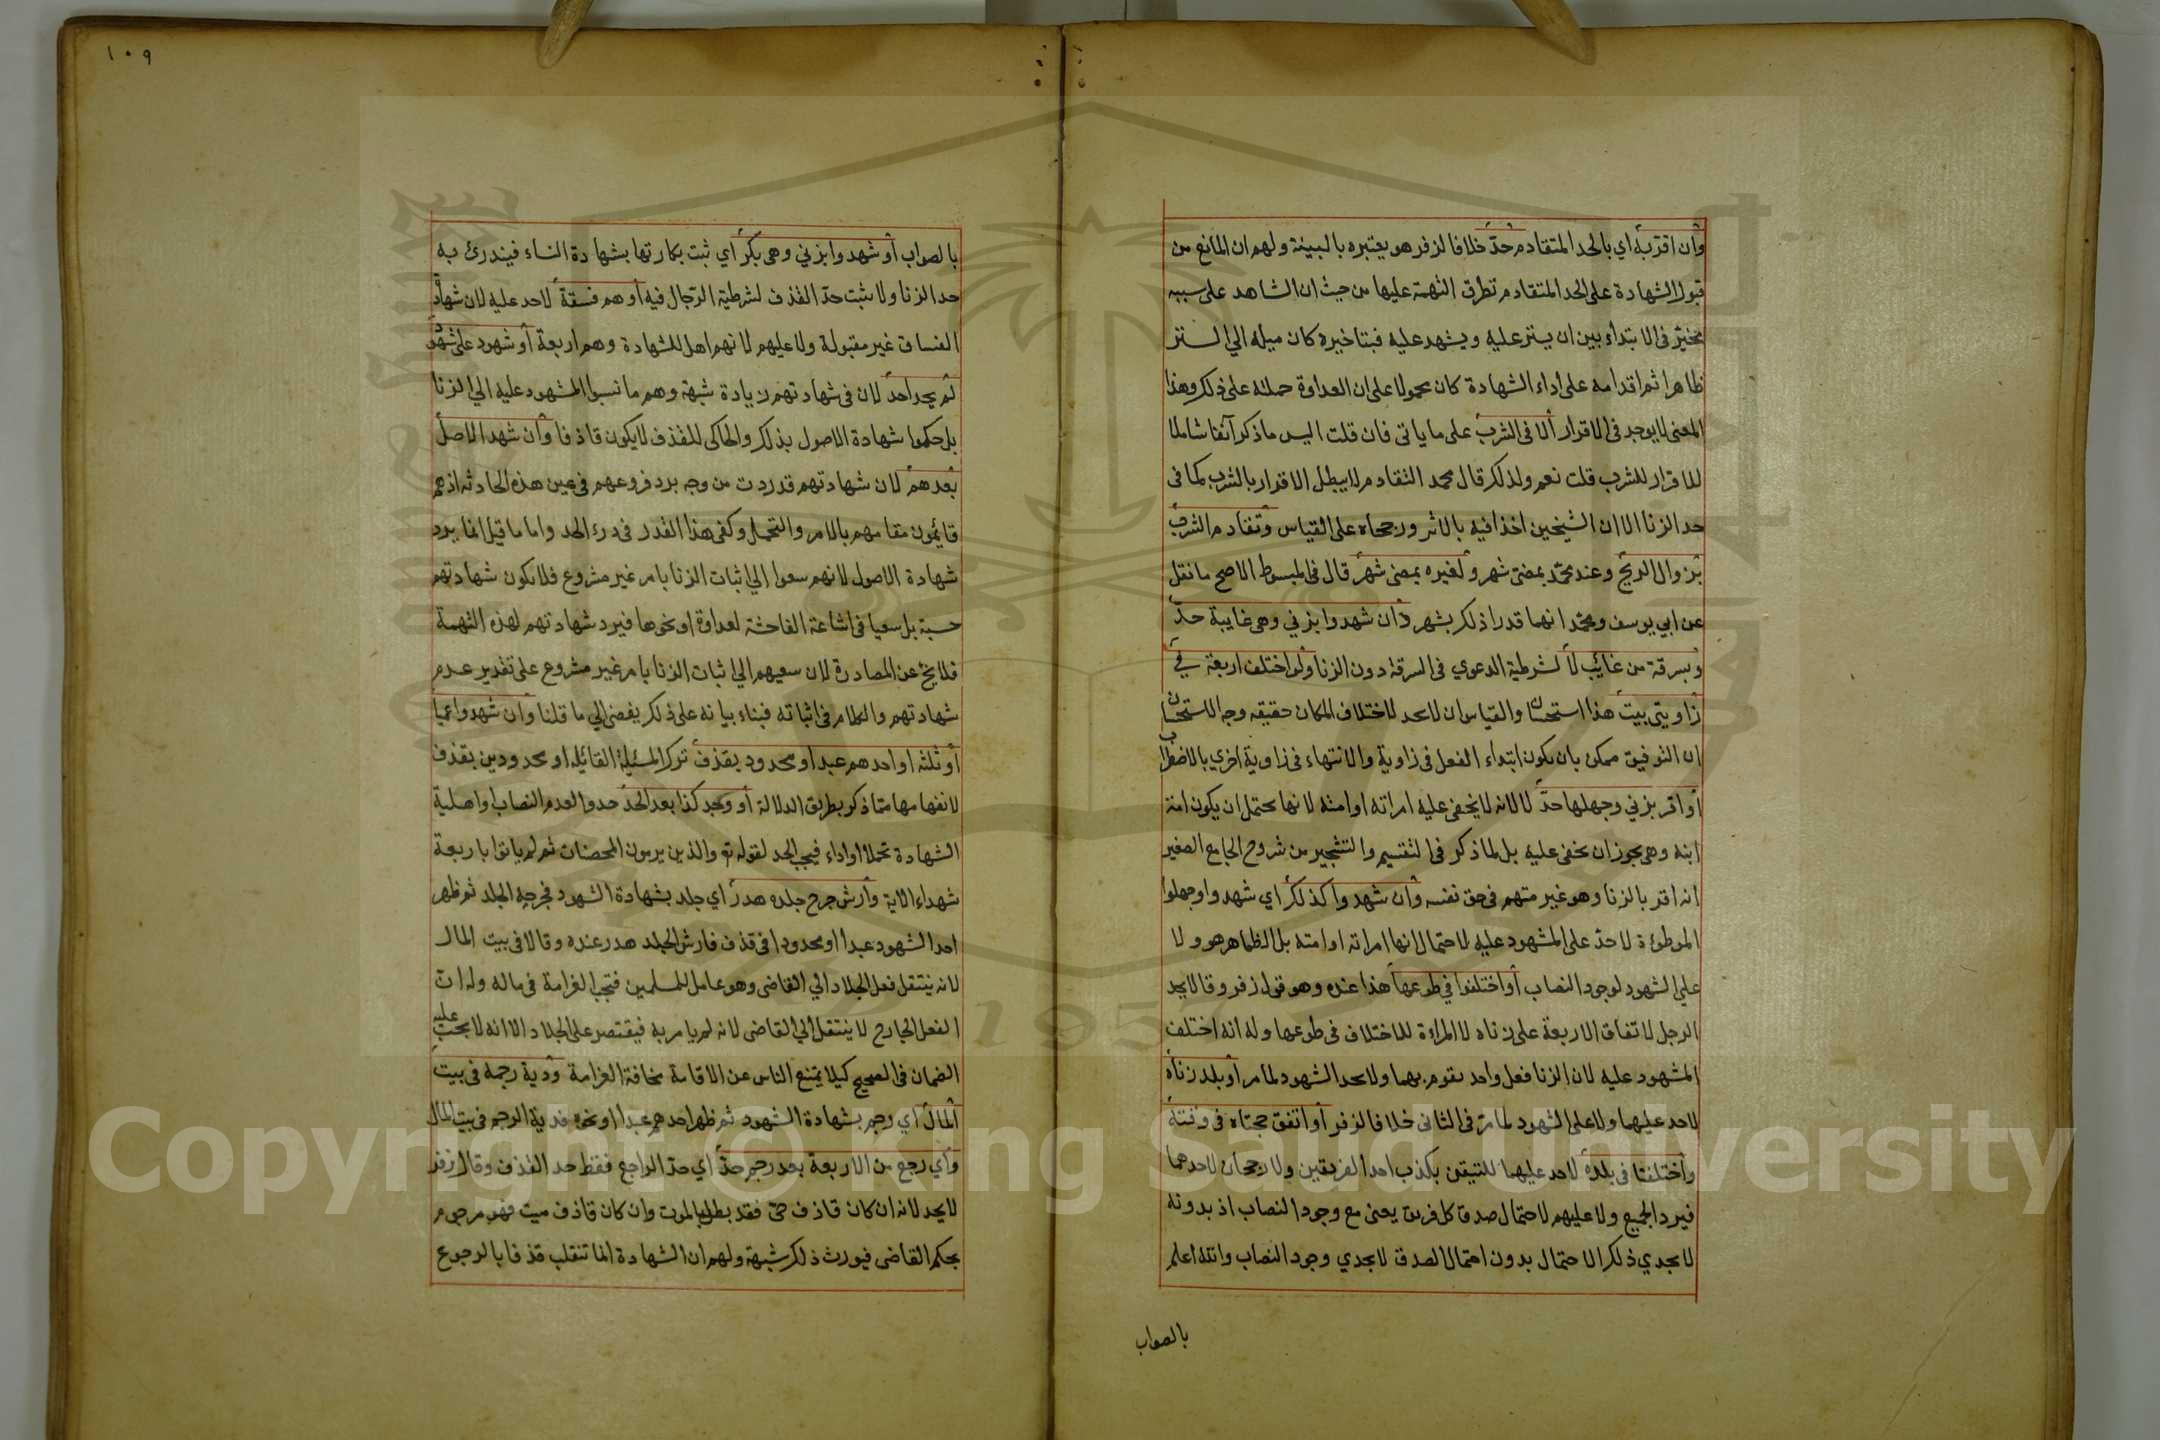 وان اقر به اي بالحد المتقادم حدّ خلافا لزفر هو يعتبره بالبينة ولهم ان المانع من
قبول الشهادة على الحد المتقادم تطرق التهمة عليها من حيث ان الشاهد على سببه
مخيّر في الابتداء بين ان يستر عليه ويشهد عليه فبتاخيره كان ميله الي الستر
ظاهرا ثم اقدامه على اداء الشهادة كان محمولا على ان العداوة حملته على ذلك وهذا
المعنى لا يوجد في الاقرار الا في الشرب على ما ياتى فان قلت اليس ما ذكر آنفا شاملا
للاقرار للشرب قلت نعم ولذلك قال محمد التقادم لا يبطل الاقرار بالشرب كما فى
حد الزنا الا ان الشيخين اخذا فيه بالاثر ورجحاه على القياس وتقادم الشرب
بزوال الريح وعند محمّد بمضى شهر ولغيره بمضى شهر قال في المبسوط الاصح ما نقل
عن ابي يوسف ومحمّد انهما قدرا ذلك بشهر وان شهدوا بزني وهى غايبة حدّ
وبسرقة من غائب لا لشرطية الدعوي في السرقة دون الزنا ولو اختلف اربعة في
زاويتي بيت هذا استحسان والقياس ان لا يحد لاختلاف المكان حقيقه وجه الاستحسان
ان التوفيق ممكن بان يكون ابتداء الفعل في زاوية والانتهاء في زاوية اخري بالاضطراب
او اقر بزني وجهلها حدّ لا لانه لا يخفى عليه امراته او امته لانها يحتمل ان يكون امة
ابنه وهى يجوز ان يخفى عليه بل لما ذكر في التقسيم والتشجير من شروح الجامع الصغير
انه اقر بالزنا وهو غير متهم فى حق نفسه وان شهدوا كذلك اي شهدوا وجهلوا
الموطوءة لا حدّ على المشهود عليه لاحتمال انها امراته او امته بل الظاهر هو ولا
علي الشهود لوجود النصاب او اختلفوا في طوعها هذا عنده وهو قول زفر وقالا يحد
الرجل لاتفاق الاربعة على زناه لا المراءة للاختلاف فى طوعها وله انه اختلف
المشهود عليه لان الزنا فعل واحد يقوم بهما ولا يحد الشهود لما مر او بلد زناه
لا حد عليهما ولا على الشهود لما مرّ فى الثانى خلافا لزفر او اتفق حجتاه فى وقته
واختلفتا فى بلده لا حد عليهما للتيقن بكذب احد الفريقين ولا رجحان لاحدهما
فيرد الجميع ولا عليهم لاحتمال صدق كل فريق يعنى مع وجود النصاب اذ بدونه
لا يجدي ذلك الاحتمال بدون احتمال الصدق لا يجدي وجود النصاب والله اعلم
بالصواب
١٠٩
بالصواب او شهدوا بزني وهى بكر اي ثبت بكارتها بشهادة النساء فيندرئ به
حد الزنا ولا يثبت حدّ القذف لشرطية الرّجال فيه او هم فسقة لا حد عليه لان شهادة
الفساق غير مقبولة ولا عليهم لانهم اهل للشهادة وهم اربعة او شهود على شهود
لم يحد احد لان فى شهادتهم زيادة شبهة وهم ما نسبوا المشهود عليه الي الزنا
بل حكموا شهادة الاصول بذلك والحاكى للقذف لا يكون قاذفا وان شهد الاصل
بعدهم لان شهادتهم قد ردت من وجه برد فروعهم فى عين هذه الحادثه اذ هم
قايمون مقامهم بالامر والتحمل وكفى هذا القدر فى درء الحد واما ما قيل انما يرد
شهادة الاصول لانهم سعوا الي اثبات الزنا بامر غير مشروع فلا يكون شهادتهم
حسبة بل سعيا فى اشاعة الفاحشة لعداوة او نحوها فيرد شهادتهم لهذه التهمة
فلا يخ عن المصادرة لان سعيهم الي اثبات الزنا بامر غير مشروع على تقدير عدم
شهادتهم والكلام فى اثباته فبناء بيانه على ذلك يفضى الي ما قلنا وان شهدوا عميا
او ثلثه او احدهم عبد او محدود بقذف ترك المسئلة القائله او محدودين بقذف
لانفهامها ممّا ذكر بطريق الدلالة او وجد كذا بعد الحدّ حدوا لعدم النصاب او اهلية
الشهادة تحملا او اداء فيجب الحد لقوله تع والذين يرمون المحصنات ثم لم ياتوا باربعة
شهداء الاية وارش جرح جلده هدر اي جلد بشهادة الشهود فجرحه الجلد ثم ظهر
احد الشهود عبدا او محدودا فى قذف فارش الجلد هدر عنده وقالا فى بيت المال
لانه ينتقل فعل الجلاد الي القاضى وهو عامل للمسلمين فتجب الغرامة فى ماله وله ان
الفعل الجارح لا ينتقل الي القاضى لانه لم يامر به فيقتصر على الجلاد الا انه لا يجب عليه
الضمان فى الصحيح كيلا يمتنع الناس عن الاقامة مخافة الغرامة ودية رجمه فى بيت
المال اي رجم بشهادة الشهود ثم ظهر احدهم عبدا او نحوه فدية الرجم فى بيت المال
واي رجع من الاربعة بعد رجم حدّ اي حدّ الراجع فقط حد القذف وقال زفر
لا يحد لانه ان كان قاذف حىّ فقد بطل بالموت وان كان قاذف ميت فهو مرجوم
بحكم القاضى فيورث ذلك شبهة ولهم ان الشهادة انما تنقلب قذفا بالرجوع
Copyright © King Saud University